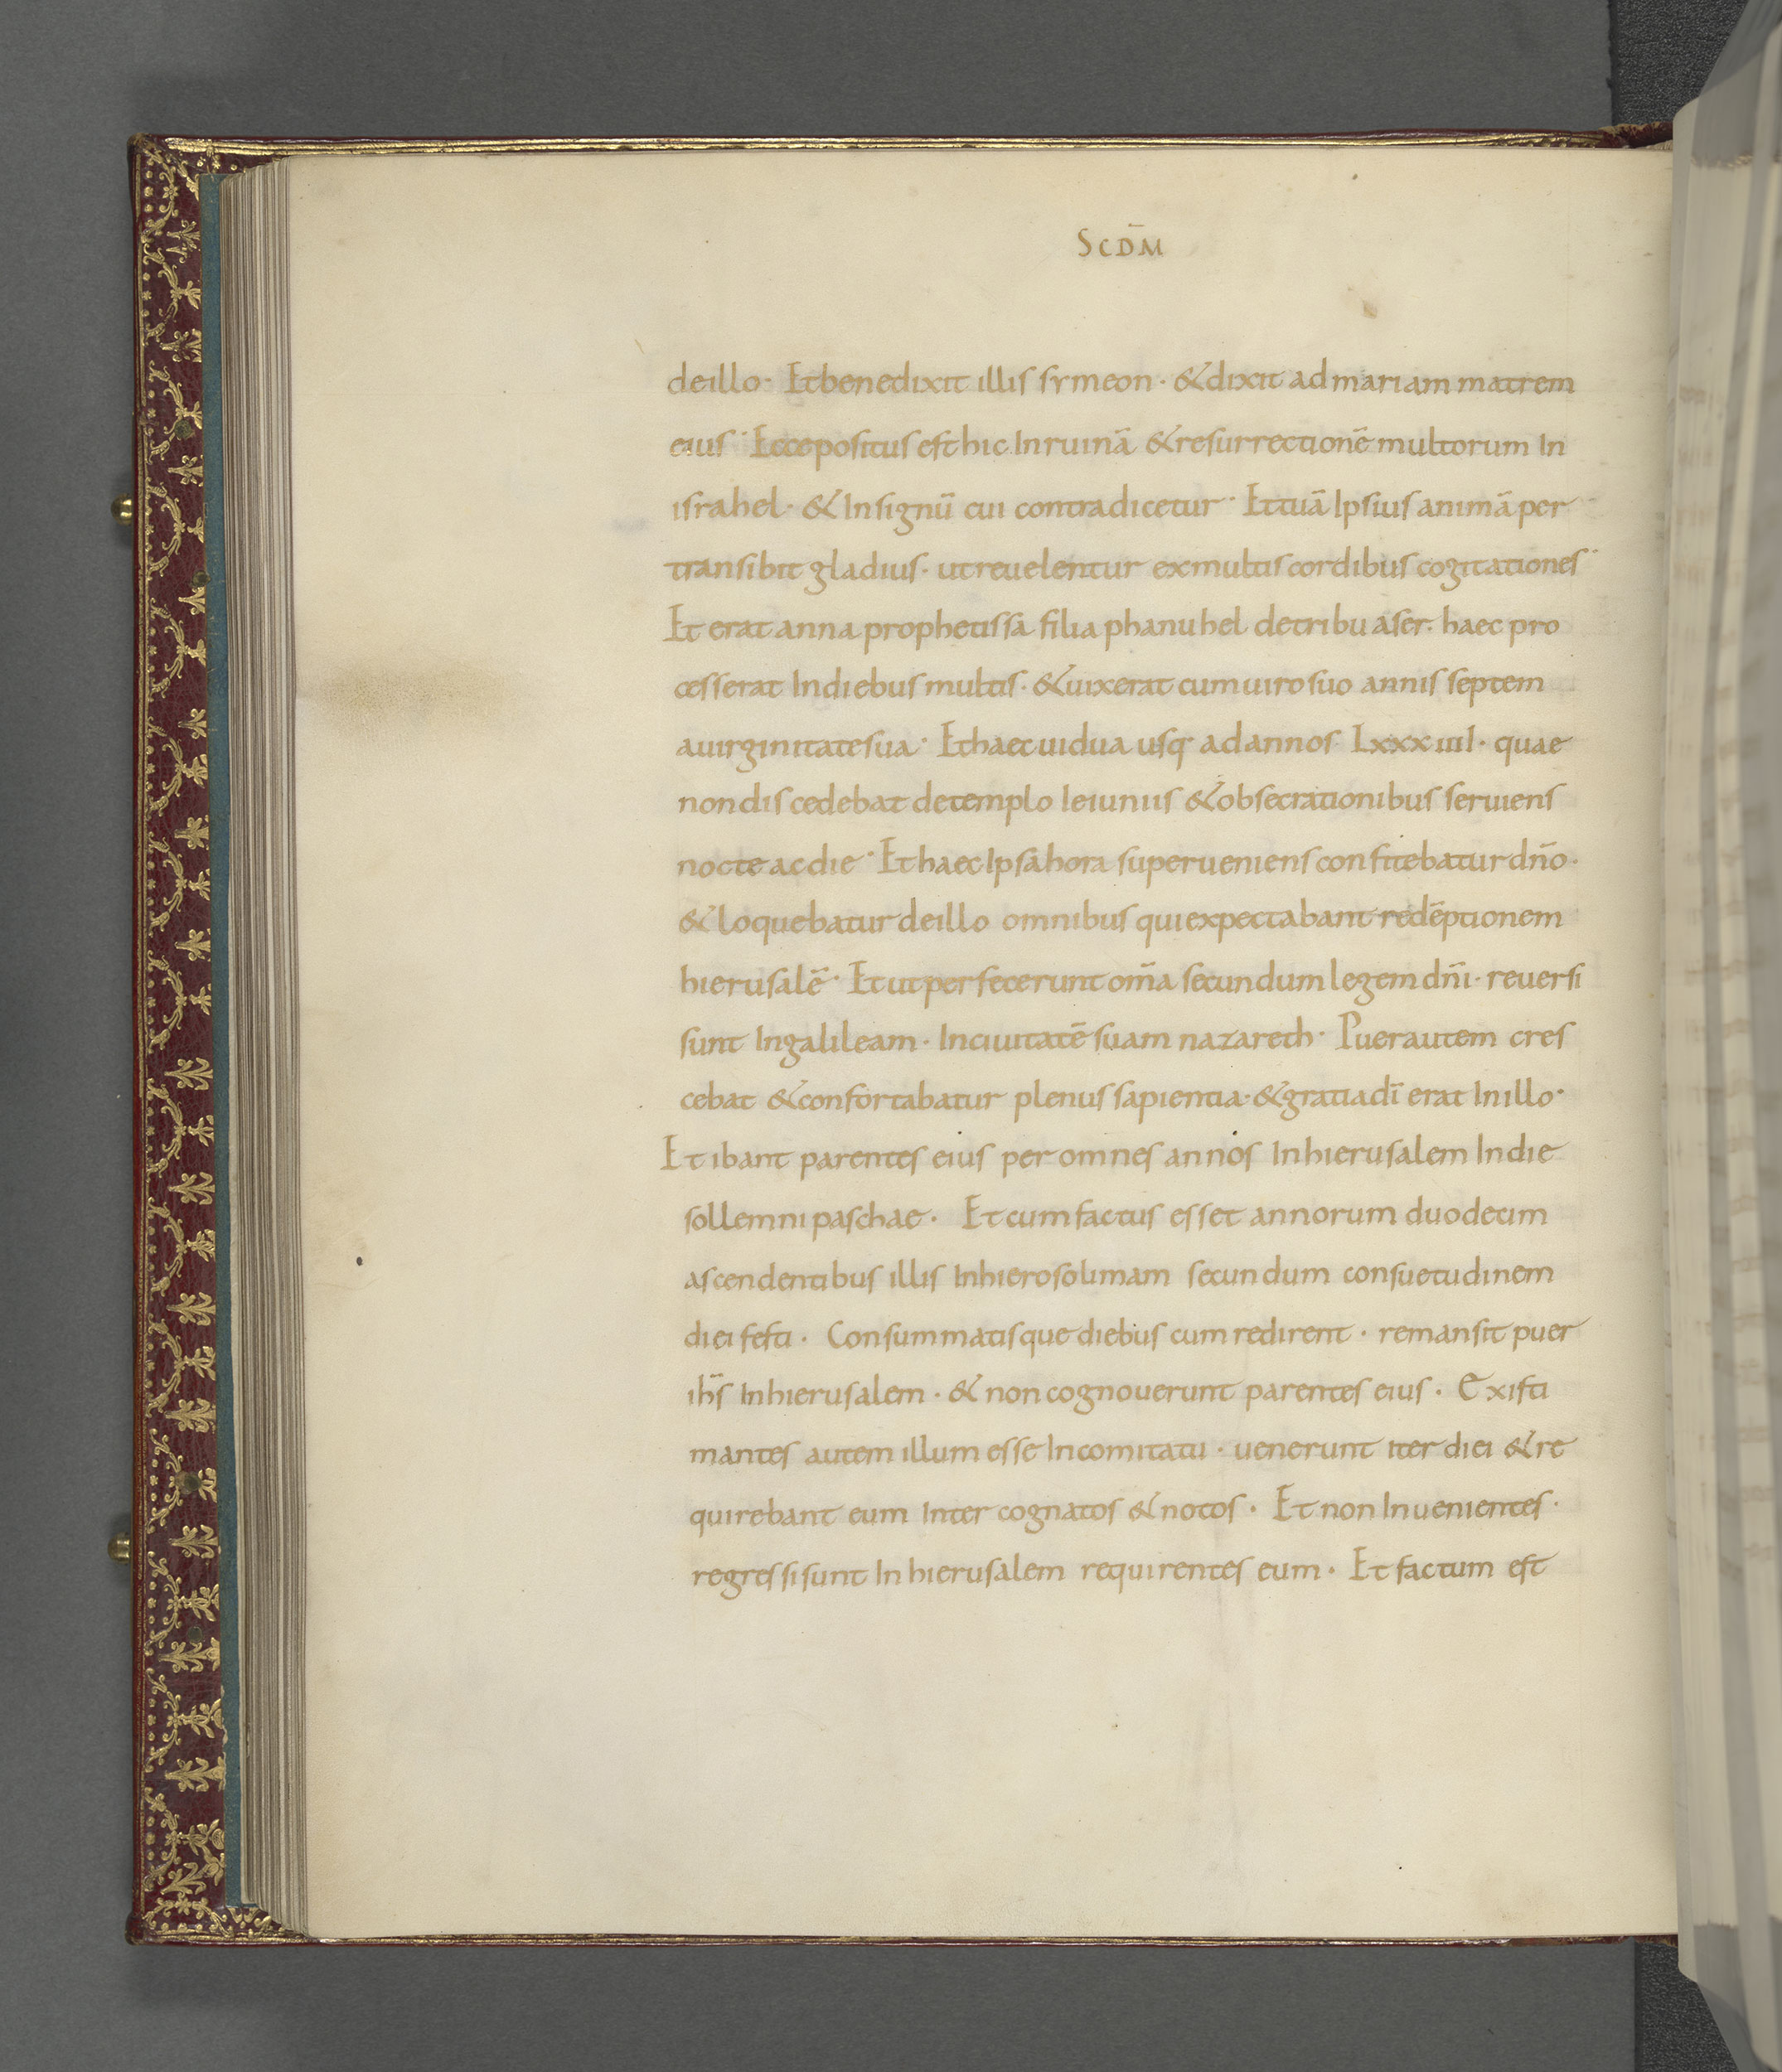 SCDM̄
deillo· Etbenedixit illis symeon· &dixit admariam matrem
eius· Eccepositus est hic Inruinā &resurrectionē multorum In
israhel· & Insignū cui contradicetur· Ettuā Ipsius animā per
transibit gladius· utreuelentur exmultis cordibus cogitationes·
Et erat anna prophetissa filia phanuhel detribu aser· haec pro
cesserat Indiebus multis· &uixerat cum uiro suo annis septem
auirginitate sua· Et haec uidua usq· ad annos Lxxxiiil· quae
non discedebat detemplo Ieiuniis &obsecrationibus seruiens
nocte ac die· Et haec Ipsa hora superueniens confitebatur dn̄o·
&loquebatur deillo omnibus quiexpectabant redēptionem
hierusalē· Et ut perfecerunt om̄a secundum legem dn̄i· reuersi
sunt Ingalileam· Inciuitatē suam nazareth· Puer autem cres
cebat &confortabatur plenus sapientia· &gratia dī erat Inillo·
Et ibant parentes eius per omnes annos Inhierusalem Indie
sollemni paschae· Et cum factus esset annorum duodecim
ascendentibus illis Inhierosolimam secundum consuetudinem
diei festi· Consummatisque diebus cum redirent· remansit puer
ih̄s Inhierusalem· & non cognouerunt parentes eius· Existi
mantes autem illum esse Incomitatu· uenerunt iter diei &re
quirebant eum Inter cognatos &notos· Et non Inuenientes·
regressi sunt In hierusalem requirentes eum· Et factum est